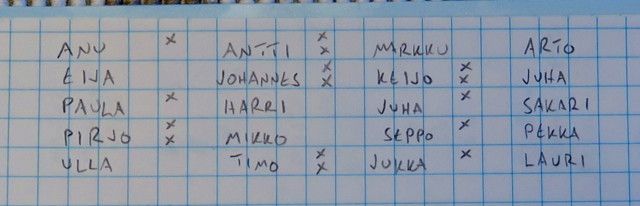 ANU x ANTTI x x MARKKU ARTO
EIJA JOHANNES x x KEIJO x x JUHA
PAULA x HARRI JUHA x SAKARI
PIRJO x x MIKKO SEPPO x PEKKA
ULLA TIMO x x JUKKA x LAURI